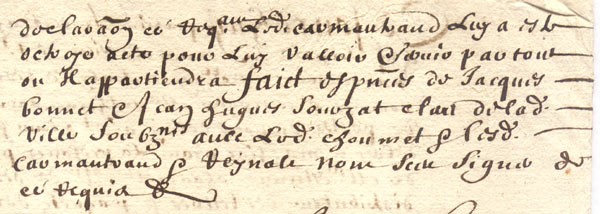 declara͠on et req͠ate Led. carmantrand Luy a este
octroye acte pour Luy valloir & servir par tout
ou Il appartiendra faict es p͠nces de Jacques
bonnet & Jean hugues Souzat clerc de lad.
ville Soubz͠nes avec Led. chonmet & lesd.
carmantrand & Reynale nont sceu signer de
ce requis &